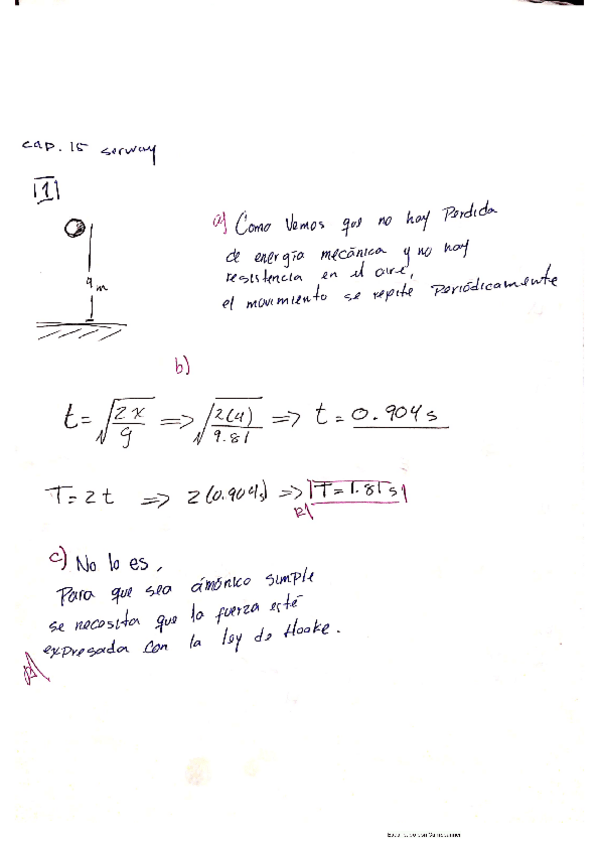 cap. 15 serway
1
4 m
a) Como Vemos que no hay Perdida
de energía mecánica y no hay
resistencia en el aire,
el movimiento se repite Periódicamente
b)
t = √(2x/g) => √(2(4)/9.81) => t = 0.904 s
T = 2t => 2(0.904s) => T = 1.81 s
R
c) No lo es,
Para que sea ármónico simple
se necesita que la fuerza esté
expresada con la ley de Hooke.